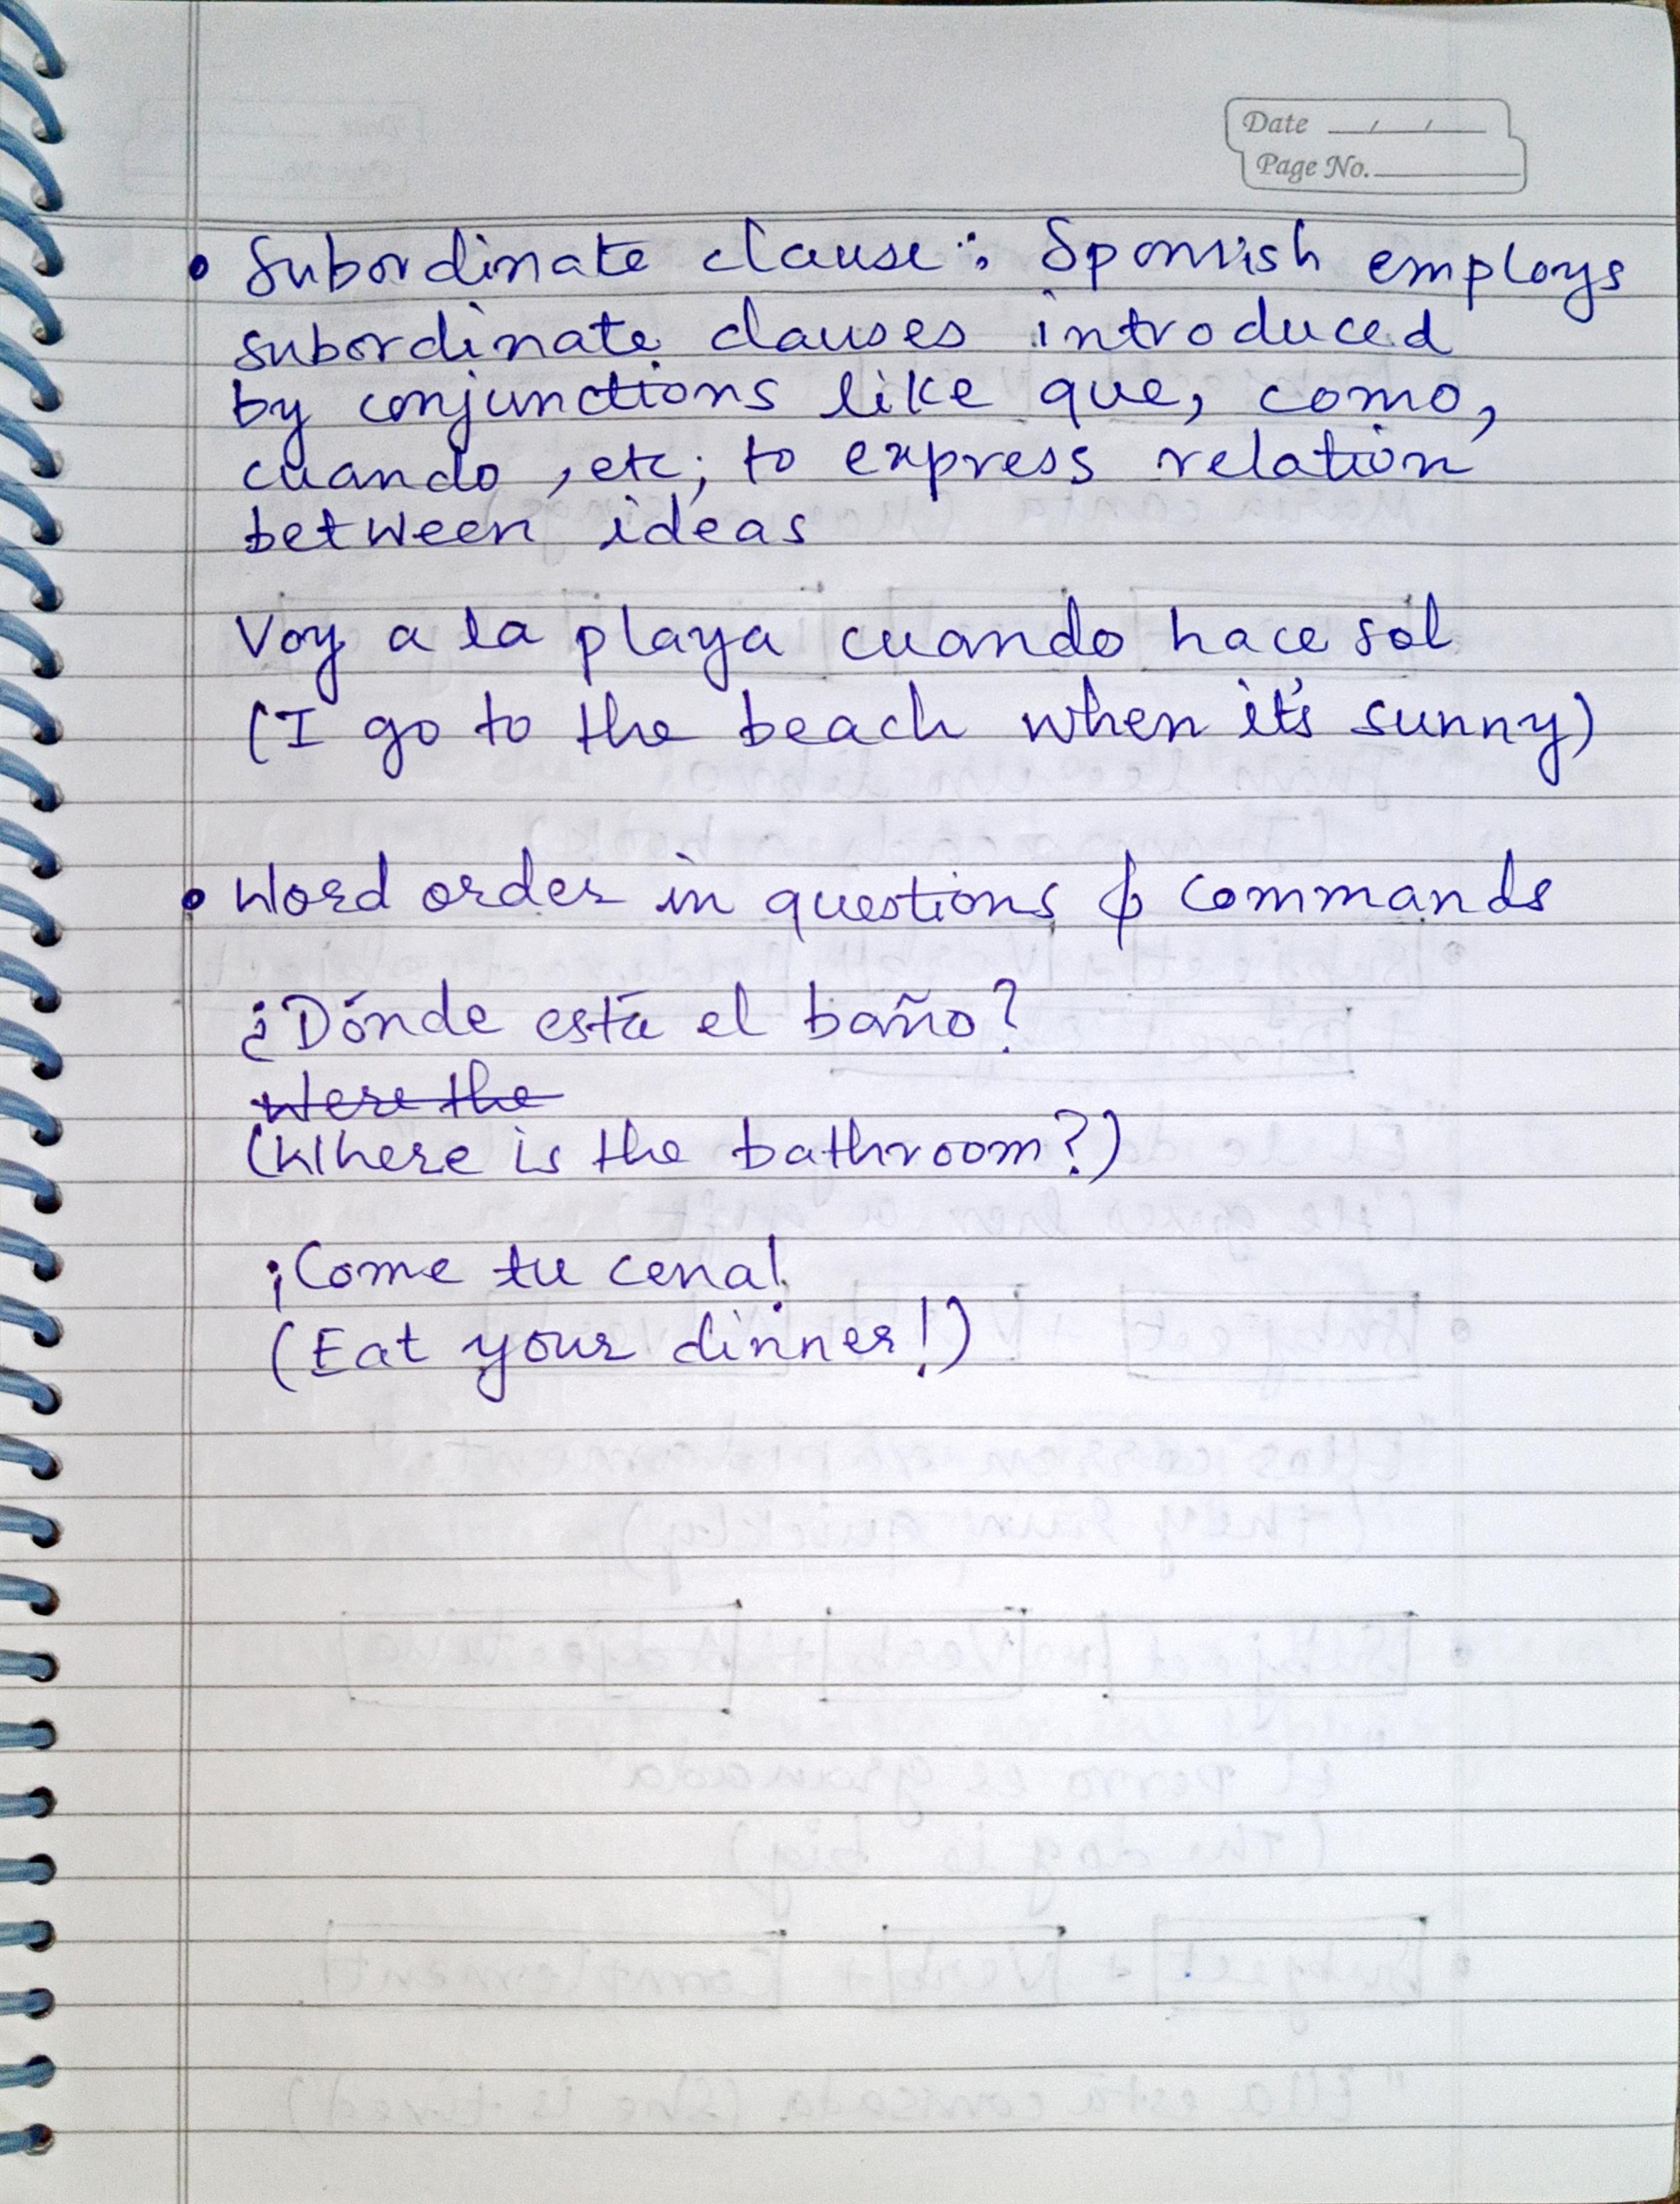 Date _/_/_
Page No.
• Subordinate clause: Spanish employs
subordinate clauses introduced
by conjunctions like que, como,
cuando, etc; to express relation
between ideas
Voy a la playa cuando hace sol
(I go to the beach when it's sunny)
• Word order in questions & commands
¿Dónde está el baño?
Were the
(Where is the bathroom?)
¡Come tu cena!
(Eat your dinner!)